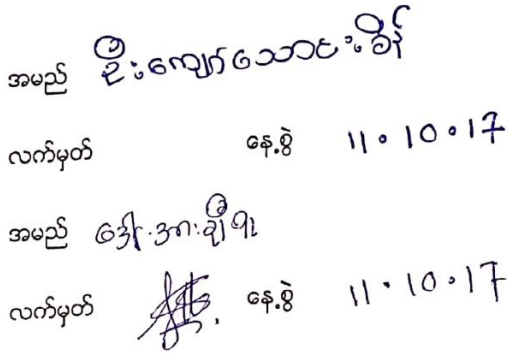 အမည် ဦးကျော်သောင်းစိန်
လက်မှတ် နေ့စွဲ 11.10.17
အမည် ဒေါ်အားချီရူ
လက်မှတ် နေ့စွဲ 11.10.17